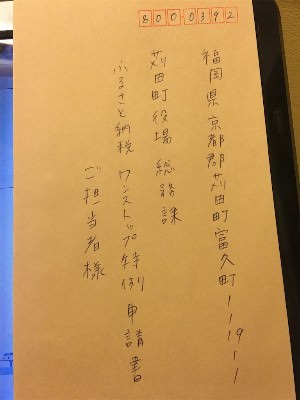 800-0392
福岡県京都郡苅田町富久町1-19-1
苅田町役場 総務課
ふるさと納税 ワンストップ特例 申請書
ご担当者様